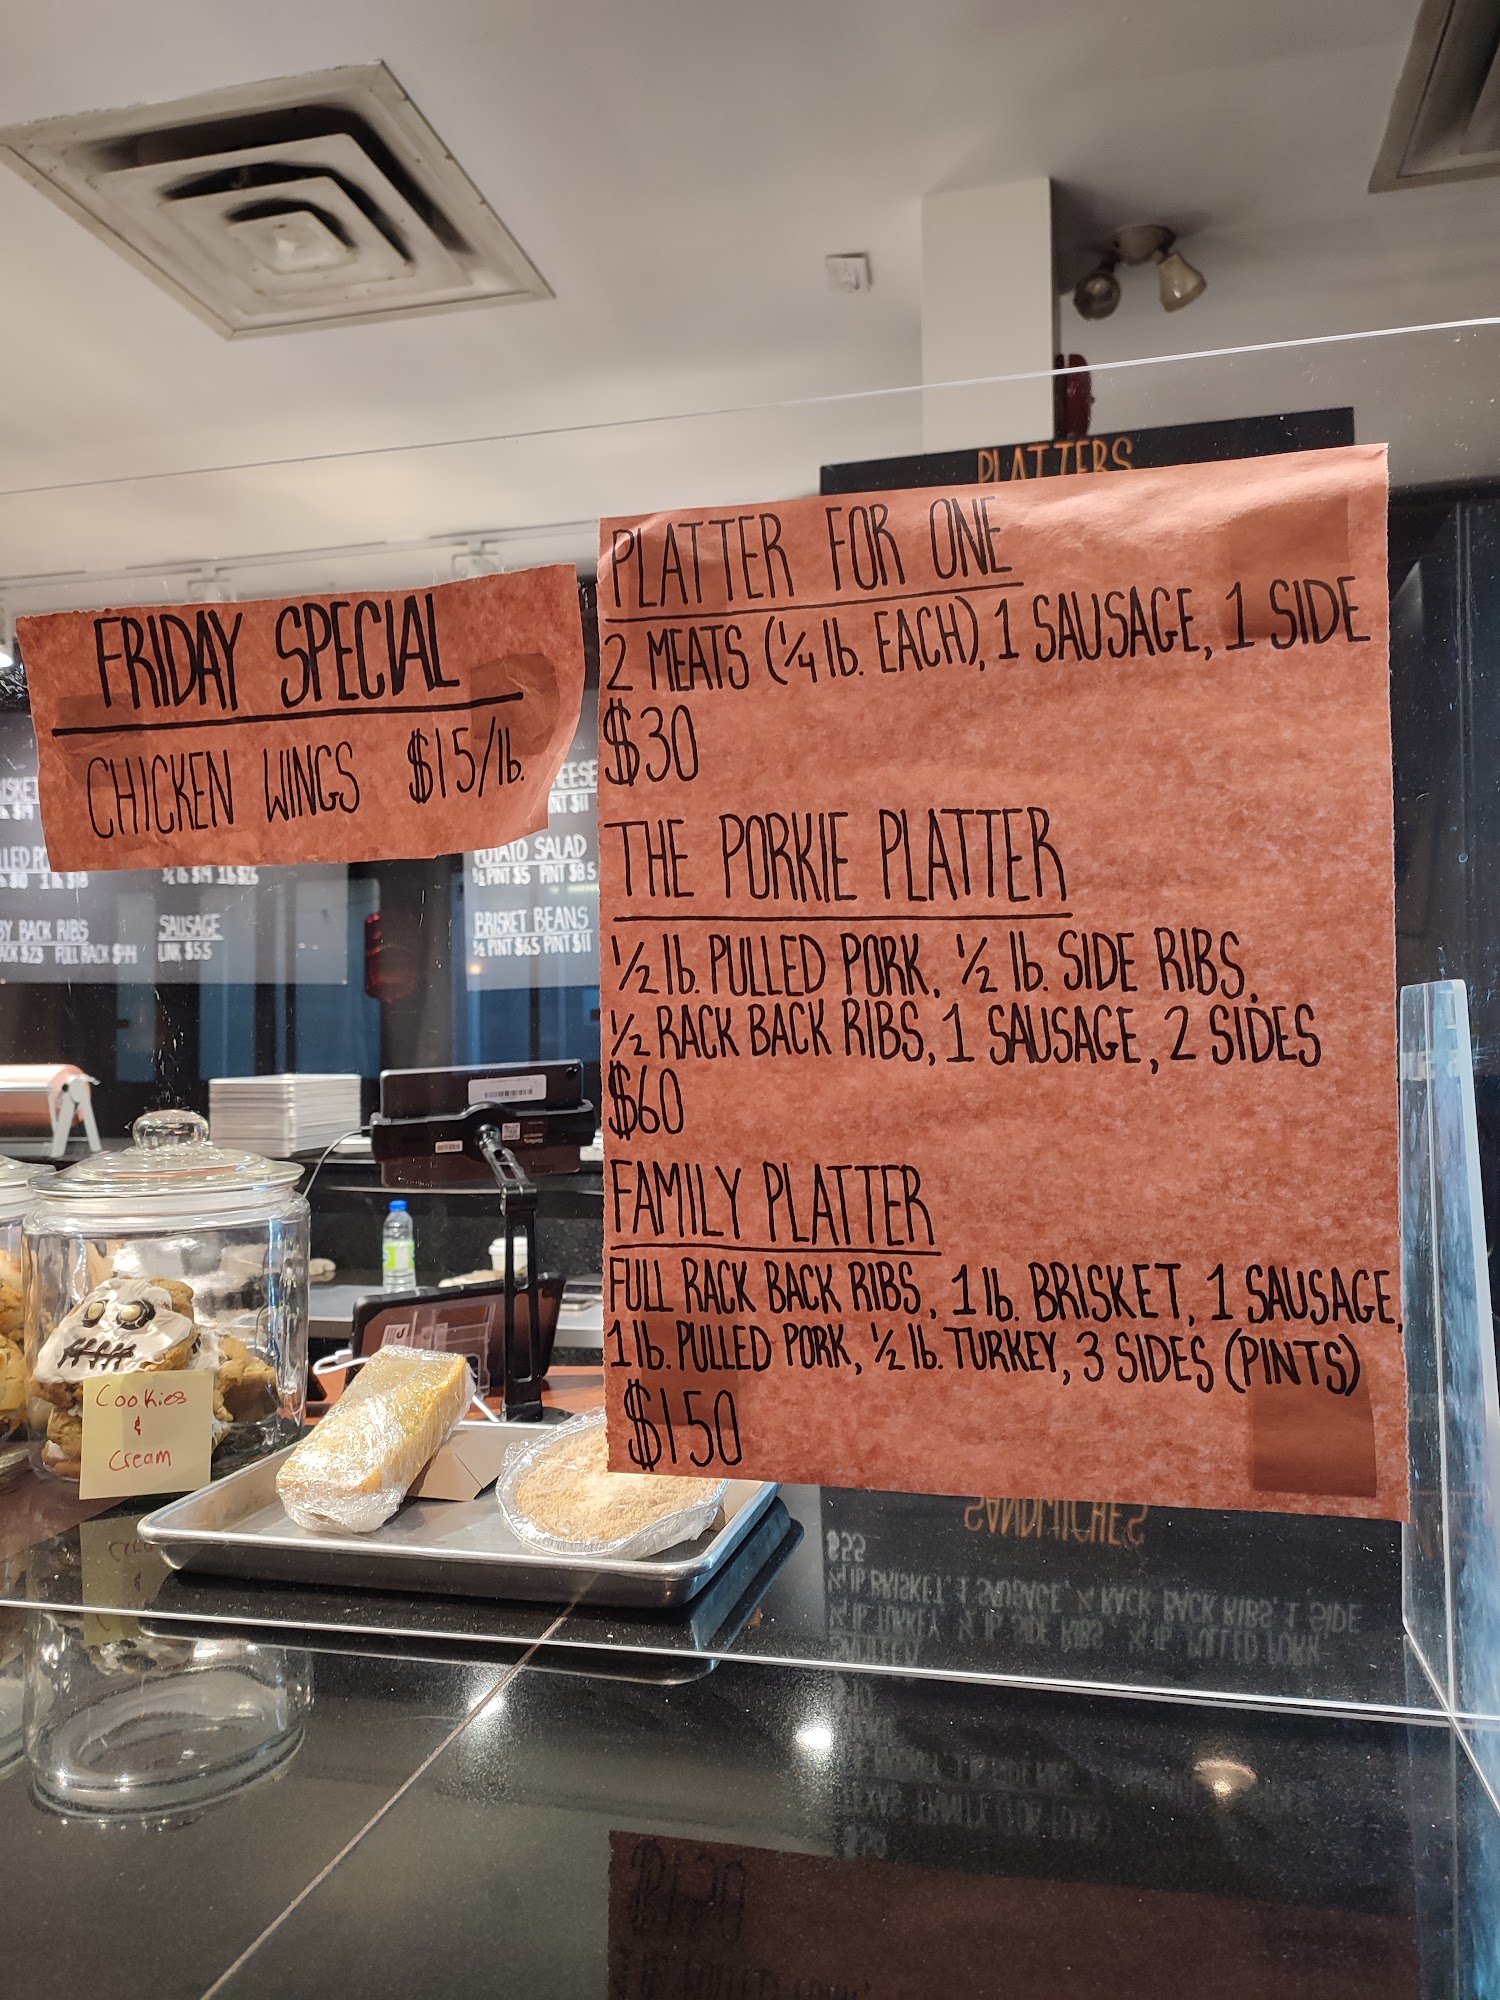 PLATTERS
FRIDAY SPECIAL
CHICKEN WINGS $15/lb.
PLATTER FOR ONE
2 MEATS (1/4 lb. EACH), 1 SAUSAGE, 1 SIDE
$30
THE PORKIE PLATTER
1/2 lb. PULLED PORK, 1/2 lb. SIDE RIBS,
1/2 RACK BACK RIBS, 1 SAUSAGE, 2 SIDES
$60
FAMILY PLATTER
FULL RACK BACK RIBS, 1 lb. BRISKET, 1 SAUSAGE,
1 lb. PULLED PORK, 1/2 lb. TURKEY, 3 SIDES (PINTS)
$150
BACK RIBS
$23 FULL RACK $44
SAUSAGE
LINK $5.5
POTATO SALAD
1/2 PINT $5 PINT $8.5
BRISKET BEANS
1/2 PINT $6.5 PINT $11
Cookies
&
Cream
SANDWICHES
$55
1/4 lb BRISKET, 1 SAUSAGE, 1/4 RACK BACK RIBS, 1 SIDE